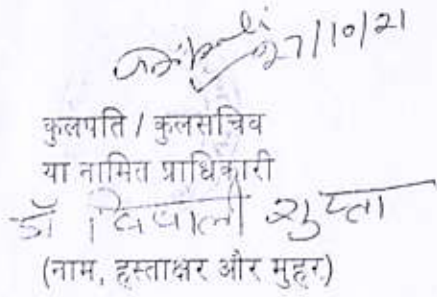 27/10/21
कुलपति / कुलसचिव
या नामित प्राधिकारी
डॉ विपाली गुप्ता
(नाम, हस्ताक्षर और मुहर)